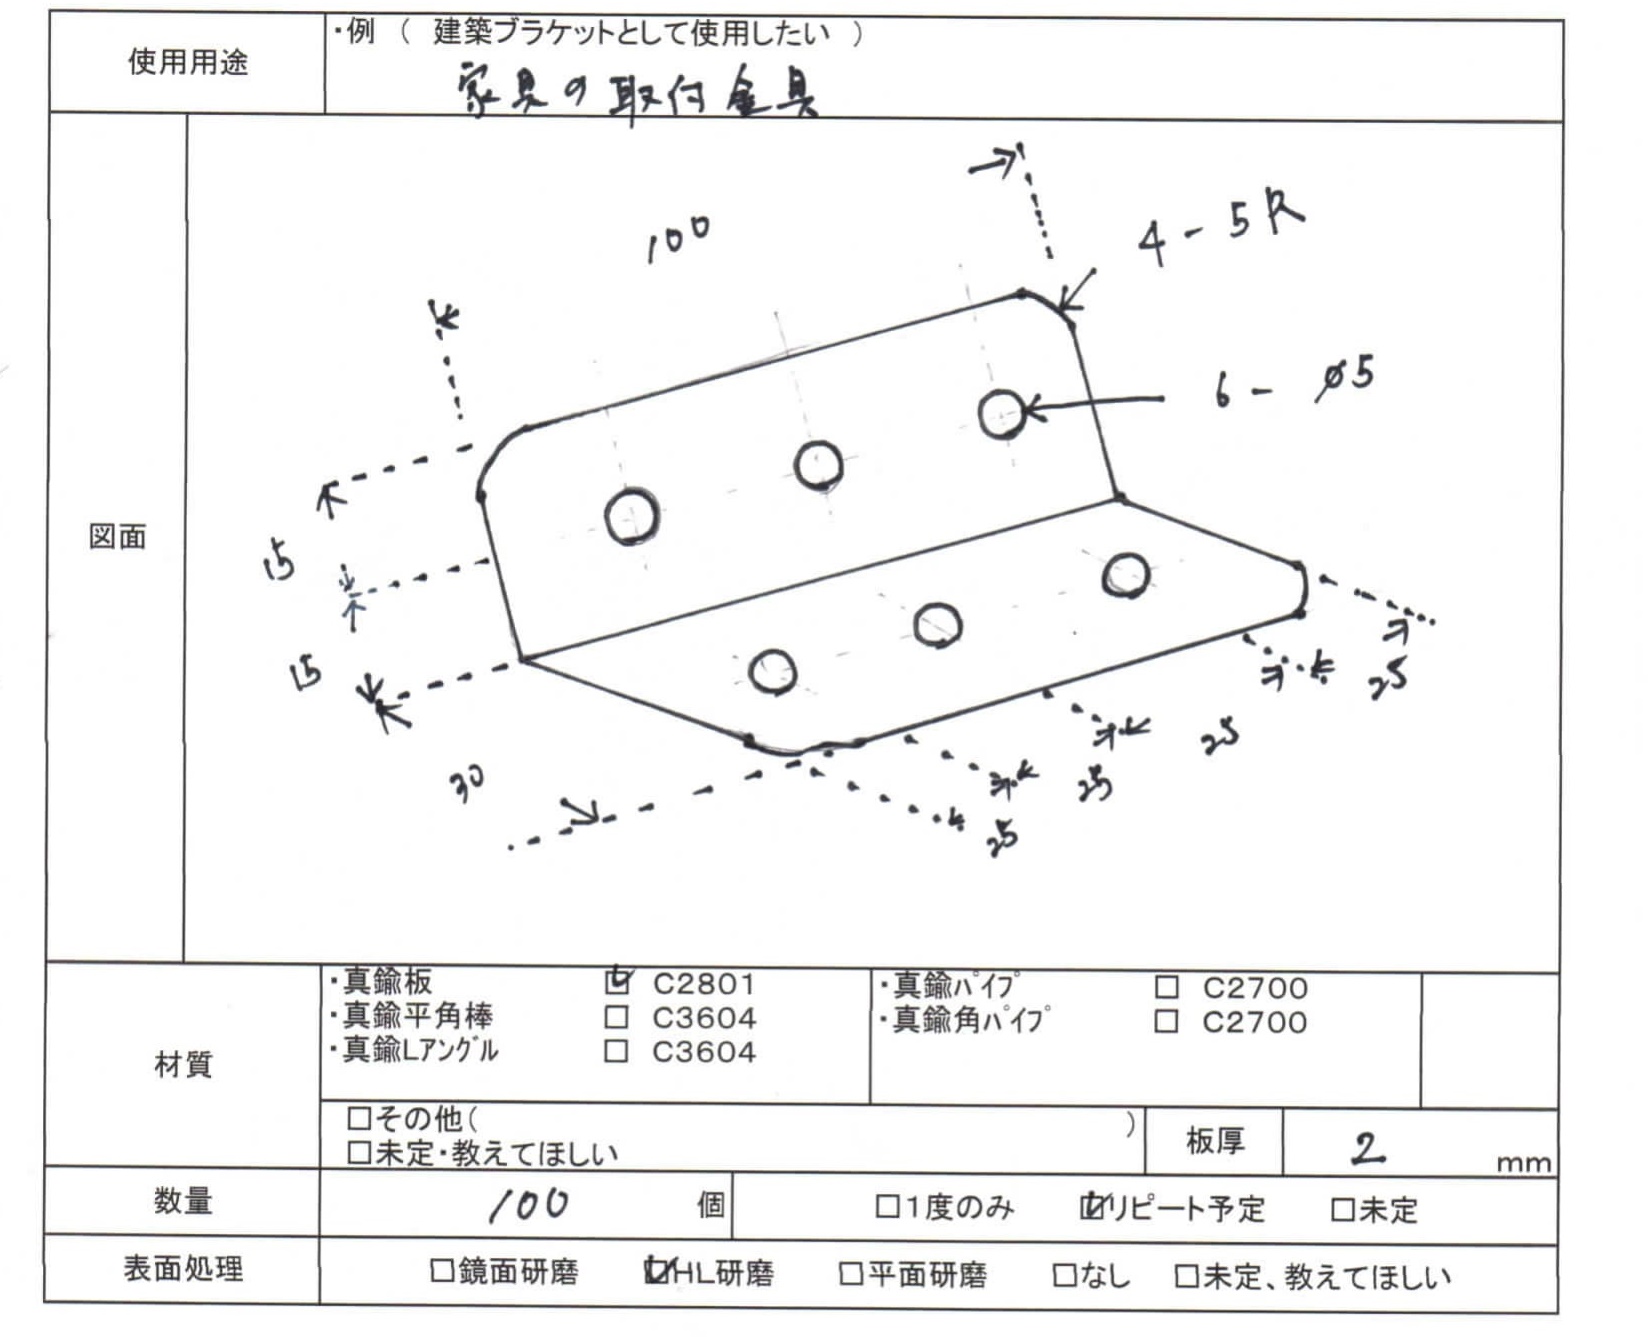 使用用途
・例 ( 建築ブラケットとして使用したい )
家具の取付金具
図面
100
4-5R
6- ø5
15
15
30
25
25
25
25
材質
・真鍮板 ☑ C2801
・真鍮平角棒 □ C3604
・真鍮Lアングル □ C3604
・真鍮パイプ □ C2700
・真鍮角パイプ □ C2700
□その他( )
□未定・教えてほしい
板厚 2 mm
数量 100 個 □1度のみ ☑リピート予定 □未定
表面処理 □鏡面研磨 ☑HL研磨 □平面研磨 □なし □未定、教えてほしい